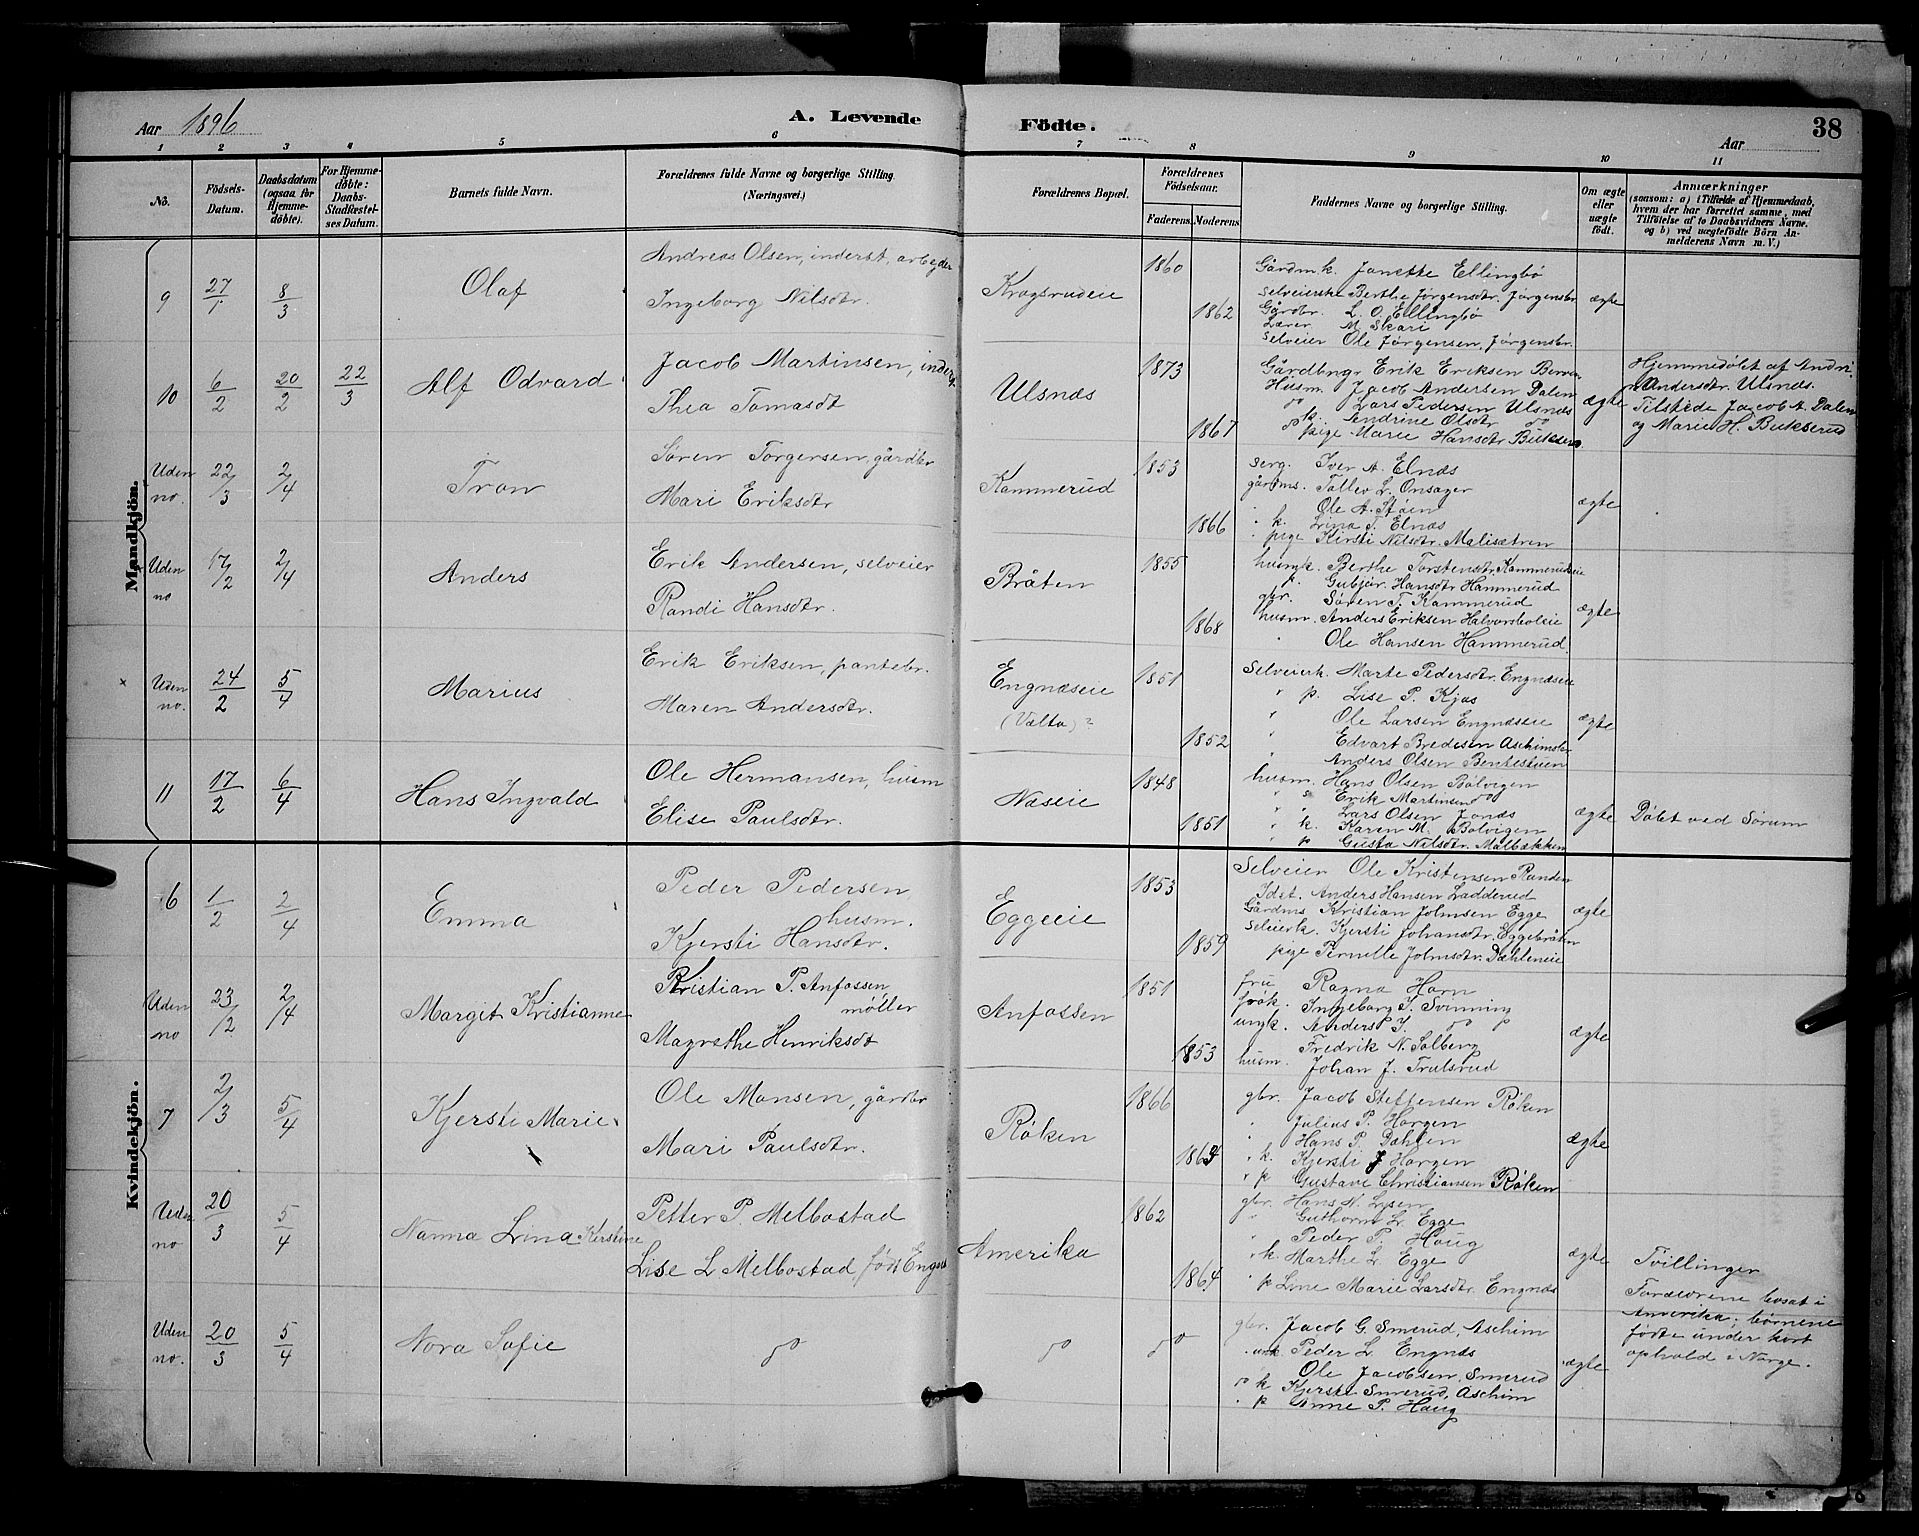 Aar 1896
A. Levende Födte.
Aar
38
1 2 3 4 5 6 7 8 9 10 11
No.
Födsels-Datum.
Daabsdatum (ogsaa for Hjemme-döbte).
For Hjemme-döbte: Daabs-Stadfæstel-ses Datum.
Barnets fulde Navn.
Forældrenes fulde Navne og borgerlige Stilling. (Næringsvei.)
Forældrenes Bopæl.
Forældrenes Födselsaar.
Faderens. Moderens.
Faddernes Navne og borgerlige Stilling.
Om ægte eller uægte födt.
Anmærkninger
(saasom: a) i Tilfælde af Hjemmedaab,
hvem der har forrettet samme, med
Tilföielse af to Daabsvidners Navne.
og b) ved uægtefödte Börn An-
melderens Navn m. V.)
Mandkjön.
9 27/1 8/3 Olaf
Andreas Olsen, inderst, arbejder
Ingeborg Nilsdtr.
Kragsrudeie 1860 1862
Gårdmk. Janette Ellingbø
Selveierske Berthe Jørgensdtr. Jørgensbr.
Gårdbr. L. O. Ellingbø
Lærer M. Skari
Selveier Ole Jørgensen, Jørgensbr.
ægte
10 6/2 20/2 22/3 Alf Odvard
Jacob Martinsen, inderst
Thea Tomasdt
Ulsnæs 1873 1867
Gårdbngr Erik Eriksen Berven
Husm. Jacob Andersen Dalen
do Lars Pedersen Ulsnæs
do k. Andrine Olsdtr do
pige Marie Hansdtr Bukserud
ægte
Hjemmedøbt af Andri-
Andersdtr. Ulsnæs.
Tilstede Jacob A. Dalen
og Marie H. Bukserud
Uden no. 22/3 2/4 Tron
Søren Torgersen, gårdbr
Mari Eriksdtr
Kammerud 1853 1866
Serg. Iver A. Elnæs
gårdms. Tollev L. Onsager
Ole A. Støen
" k. Lina T. Elnæs
" pige Kirsti Nilsdtr. Malisætren
ægte
Uden no 17/2 2/4 Anders
Erik Andersen, selveier
Randi Hansdtr.
Bråten 1855 1868
husmk. Berthe Torstensdtr. Kammerudeie
p. Gubjør. Hansdtr Hammerud
gbr. Søren T. Kammerud
husm. Anders Eriksen Halvorsboleie
Ole Hansen Hammerud.
ægte
Uden no. 24/2 5/4 Marius
Erik Eriksen, pantebr.
Maren Andersdtr.
Engnæseie
(Valta)?
1851 1852
Selveierk. Marte Pedersdtr. Engnæseie
" p. Lise P. Kjos
" Ole Larsen Engnæseie
" Edvart Bredesen Aschimsbr
" Anders Olsen Benteseien
ægte
11 17/2 6/4 Hans Ingvald
Ole Hermansen, husm
Elise Paulsdtr.
Næseie 1848 1851
husm. Hans Olsen Bølvigen
" s Erik Martinsen do
" Lars Olsen Jonæs
" k. Karen M. Bølvigen
" p Gusta Nilsdtr. Malbækken
ægte
Døbt ved Sørum
Kvindekjön.
6 1/2 2/4 Emma
Peder Pedersen
husm.
Kjersti Hansdtr.
Eggeeie 1853 1859
Selveier Ole Kristensen Randen
Idst. Anders Hansen Ladderud
Gårdms Kristian Johnsen Egge
Selveierk. Kjersti Johansdtr. Eggebråten
pige Pernille Johnsdtr. Dæhleneie
ægte
Uden no 23/2 2/4 Margit Kristianne
Kristian P. Anfossen
møller
Magrethe Henriksdt
Anfossen 1851 1853
fru Ragna Horn
frøk. Ingeborg I. Svinning
ungk. Anders I. do
Fredrik N. Solberg
husm. Johan J. Trulsrud
ægte
7 2/3 5/4 Kjersti Marie
Ole Monsen, gårdbr
Mari Paulsdtr.
Røken 1866 1864
gbr. Jacob Steffensen Røken
" Julius P. Horgen
" Hans P. Dæhlen
" k. Kjersti J Horgen
" p Gustave Christiansen Røken
ægte
Uden no 20/3 5/4 Nanna Lina Kirstine
Petter P. Melbostad
Lise L Melbostad, født Engnæs
Amerika 1862 1864
gbr. Hans N. Lysen
" Guthorm L. Egge
" Peder P. Haug
" k. Marthe L. Egge
" p Line Marie Larsdtr. Engnæs
ægte
Tvillinger
Forældrene bosat i
Amerika; børnene
fødte under kort
ophold i Norge.
Uden no. 20/3 5/4 Nora Sofie
do do do
gbr. Jacob G. Smerud, Aschim
" unk. Peder L. Engnæs
Ole Jacobsen, Smerud
do k Kjersti Smerud, Aschim
" p Anne P. Haug
ægte